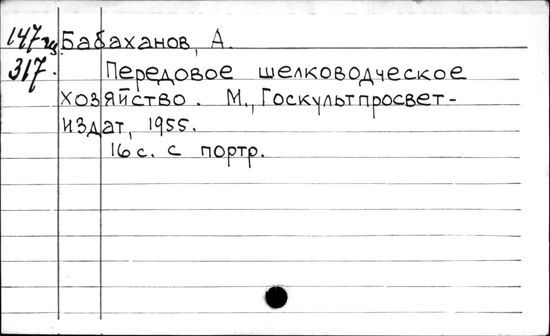 Бабаханов, А.
317. Передовое шелководческое
хозяйство. М., Госкультпросвет-
издат, 1955.
16 с. с портр.